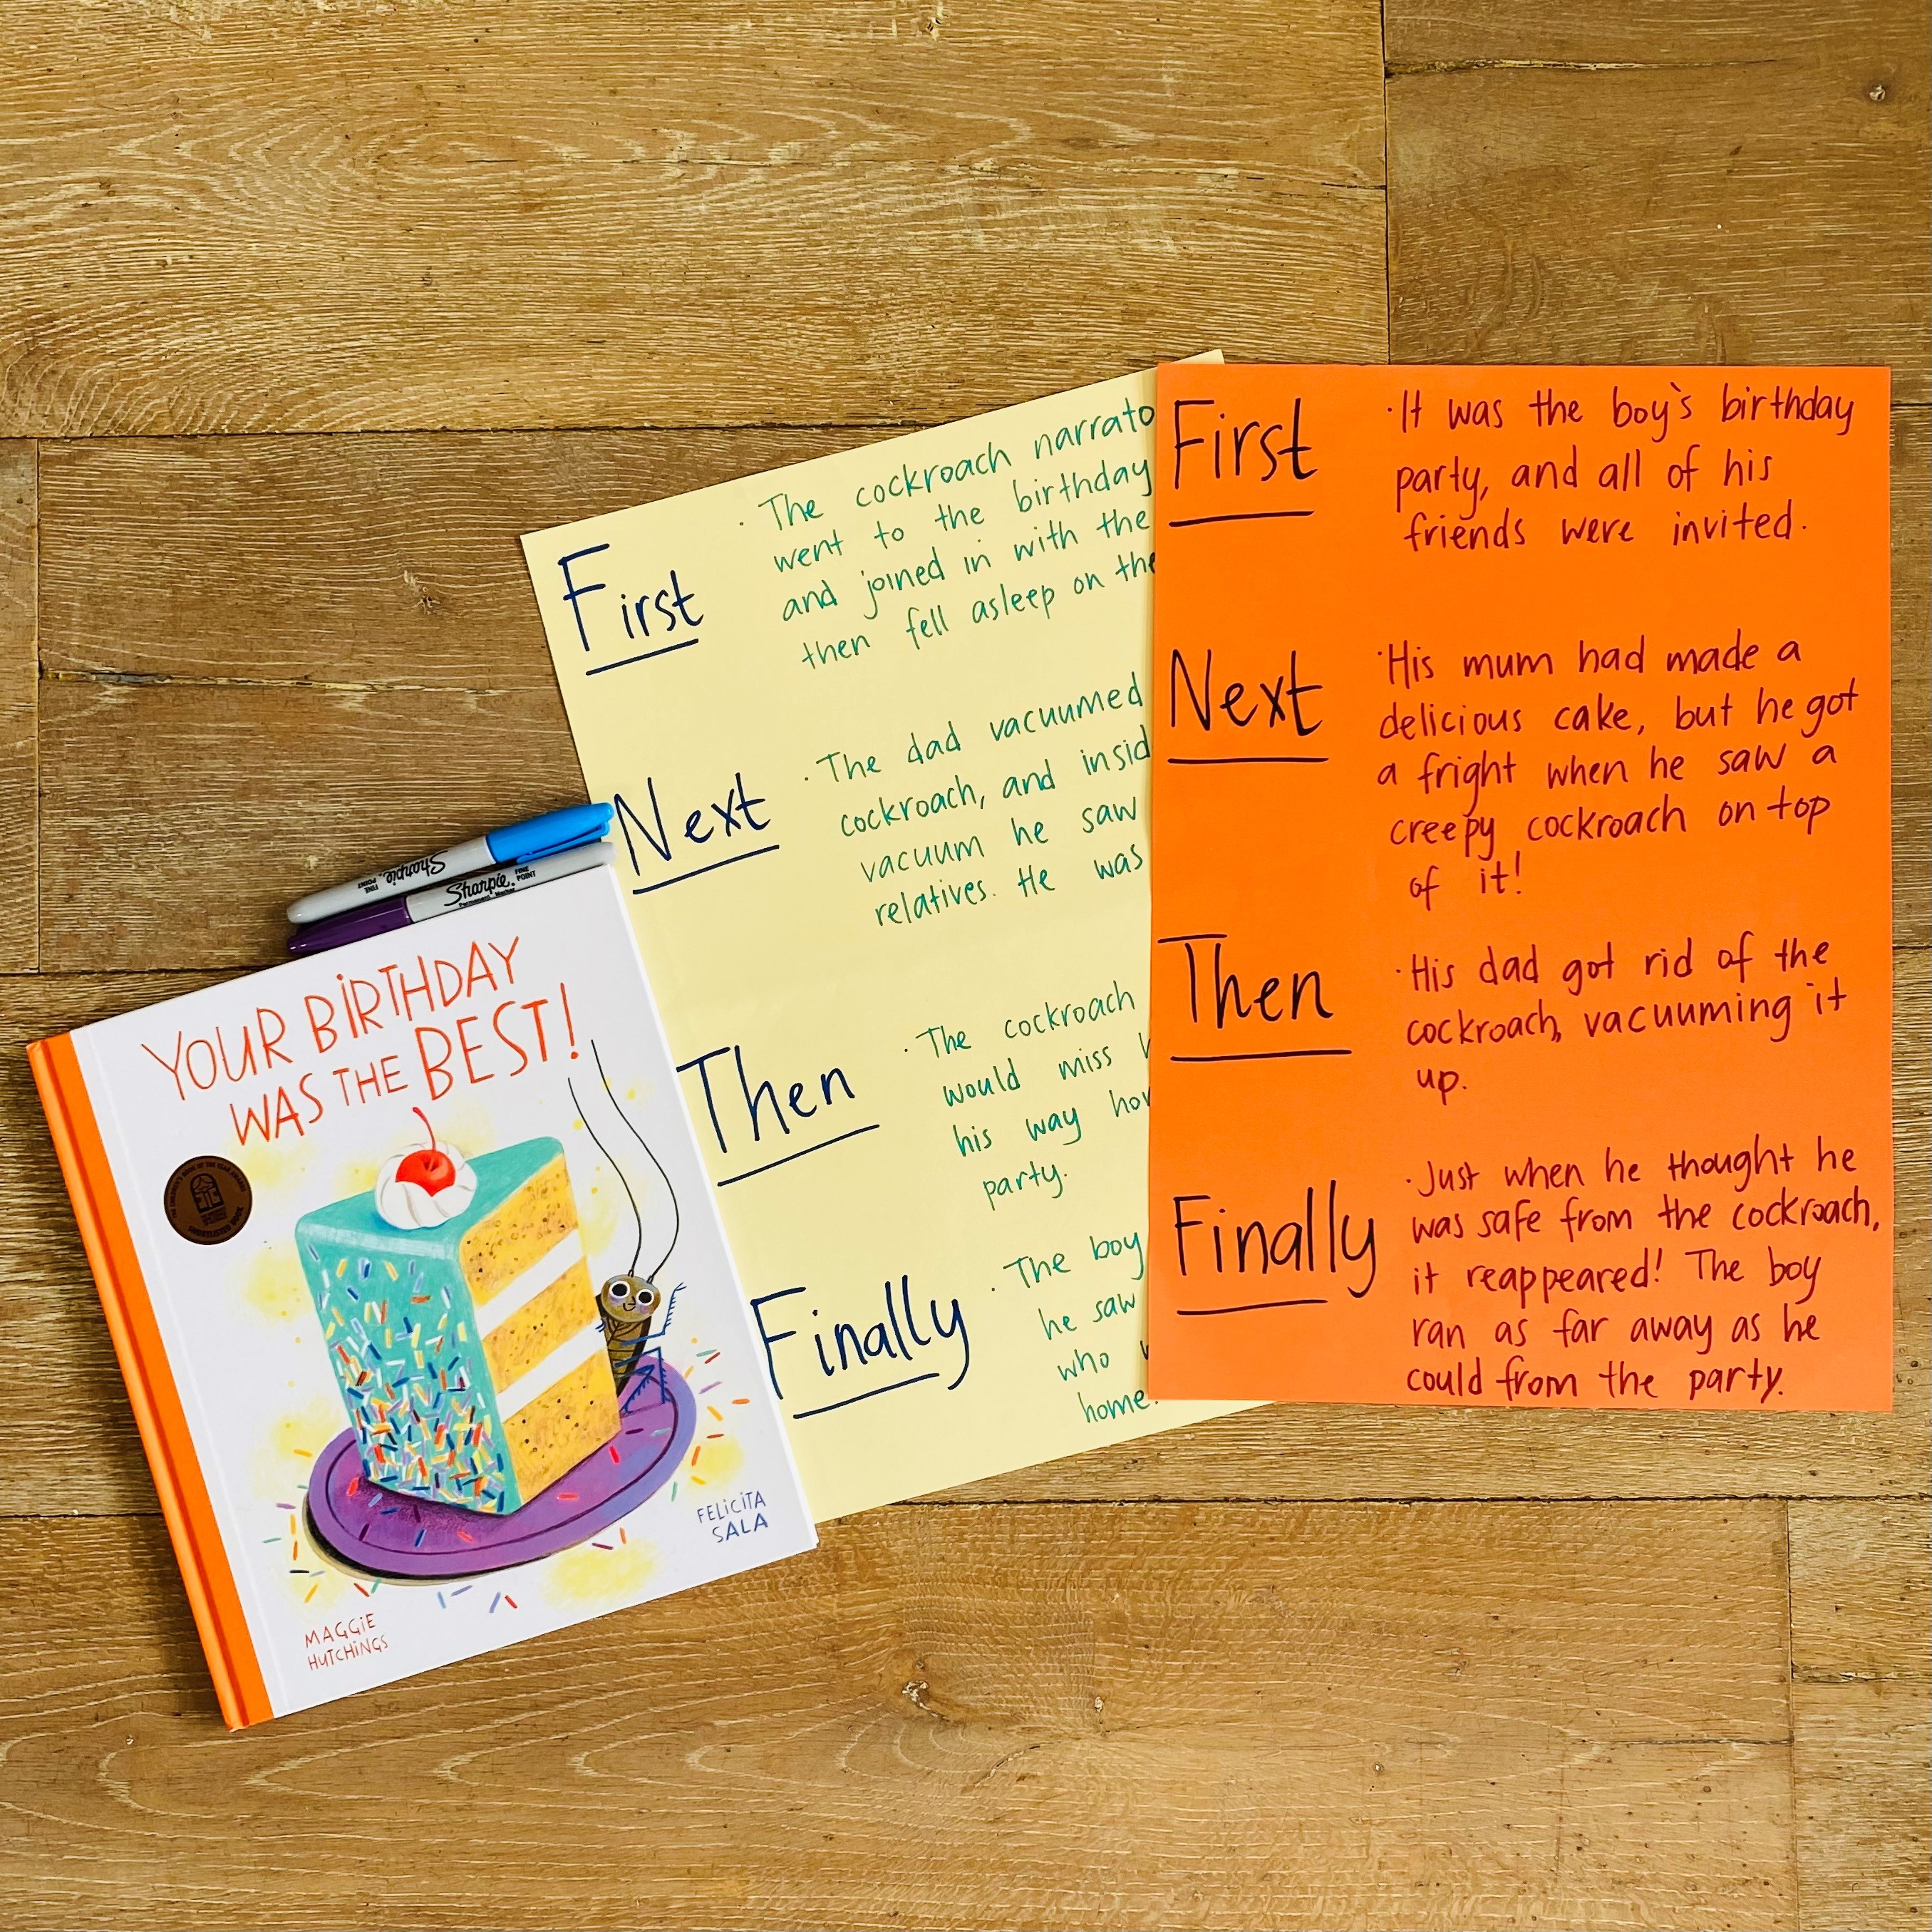 YOUR BIRTHDAY
WAS THE BEST!
MAGGIE
HUTCHINGS
FELICITA
SALA
Sharpie
FINE
POINT
Sharpie
Permanent Marker
FINE
POINT
First
· The cockroach
went to the birthday
and joined in with the
then fell asleep on the
Next
· The dad vacuumed
cockroach, and
vacuum he saw
relatives. He was
Then
· The cockroach
would miss
his way
party.
Finally
· The boy
he saw
who
home.
First
· It was the boy's birthday
party, and all of his
friends were invited.
Next
· His mum had made a
delicious cake, but he got
a fright when he saw a
creepy cockroach on top
of it!
Then
· His dad got rid of the
cockroach, vacuuming it
up.
Finally
· Just when he thought he
was safe from the cockroach,
it reappeared! The boy
ran as far away as he
could from the party.